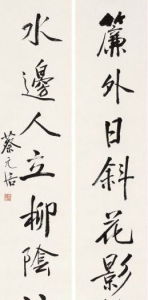 簾外日斜花影
水邊人立柳陰
蔡元培